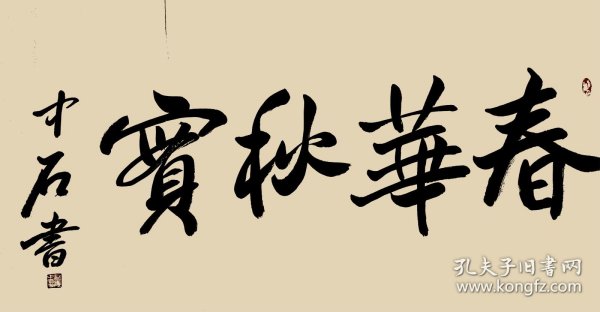 春華秋實
中石書
孔夫子旧書网
www.kongfz.com